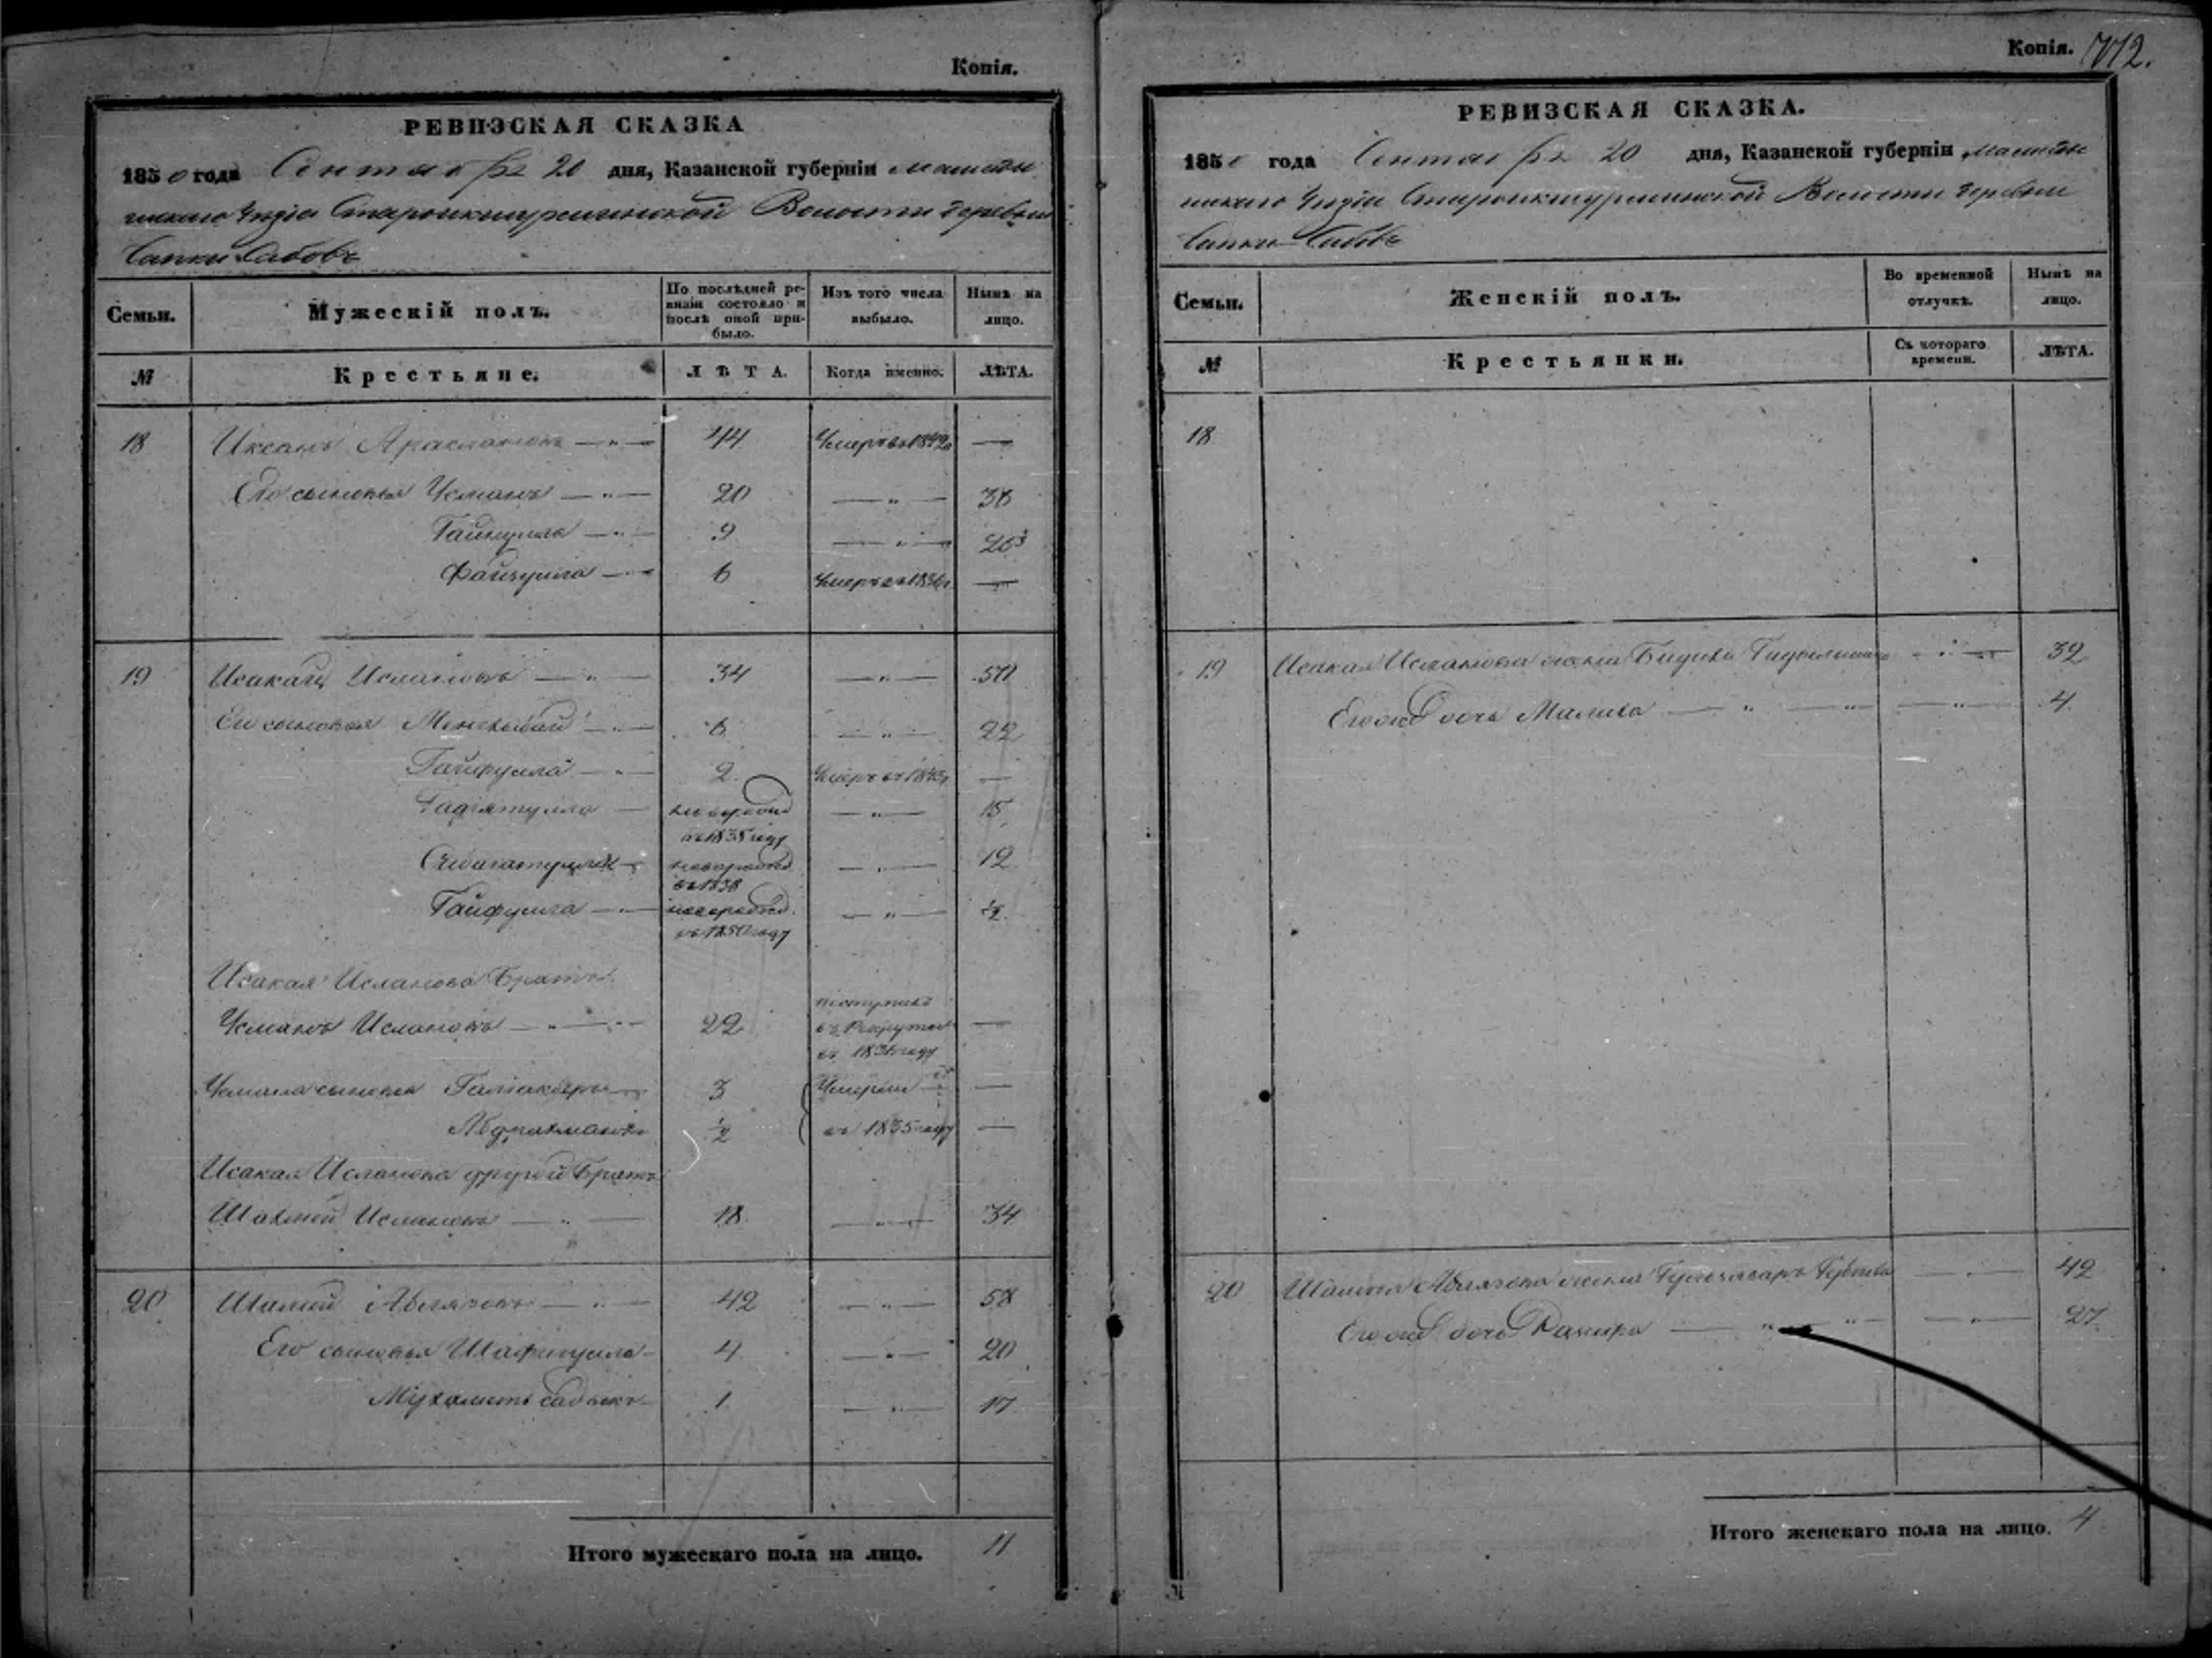 Копія.
РЕВИЗСКАЯ СКАЗКА
1850 года Сентября 20 дня, Казанской губерніи Мамадыш
скаго Уѣзда Староикшурминской Волости деревни
Сатки Сабовъ
Семьи.
Мужескій полъ.
По послѣдней ре-
визіи состояло и
послѣ оной при-
было.
Изъ того числа
выбыло.
Нынѣ на
лицо.
№
Крестьяне.
ЛѢТА.
Когда именно.
ЛѢТА.
18 Иксанъ Араслановъ — " — 44 Умеръ въ 1842 —
Его сыновья Усманъ — " — 20 — " — 38
Гайнулла — " — 9 — " —
Файзулла — " — 6 Умеръ въ —
19 ИсакайИслановъ — " — 34 — " — 50
Его сыновья — " — 6 — " — 22
Гайфулла — " — 2 Умеръ въ —
— новорожд — " — 15
въ 1835 году
новорожд — " — 12
въ 1838
Гайфулла — " — новорожд — " — ½
въ 1850 году
Исакая Исланова Братъ
поступилъ
УсманъИслановъ — " — 22 въ Рекруты —
въ году
Усмана сыновья — 3 Умерли —
½ въ 1835 году —
Исакая Исланова другой Братъ
ШахмейИслановъ — " — 18 — " — 34
20 Шамей Аблязовъ — " — 42 — " — 58
Его сыновья Шафигулла — 4 — " — 20
Мухаметъ Садыкъ — 1 — " — 17
Итого мужескаго пола на лицо. 11
Копія. 712.
РЕВИЗСКАЯ СКАЗКА.
1850 года Сентября 20 дня, Казанской губерніи Мамадыш
скаго Уѣзда Староикшурминской Волости деревни
Сатки Сабовъ
Семьи.
Женскій полъ.
Во временной
отлучкѣ.
Нынѣ на
лицо.
№
Крестьянки.
Съ котораго
времени.
ЛѢТА.
18
19 Исакая Исланова жена — " — 32
Его же дочь Малика — " — " — " — 4
20 Шамея Аблязова жена — " — 42
Его же дочь — " — " — " — 27
Итого женскаго пола на лицо. 4